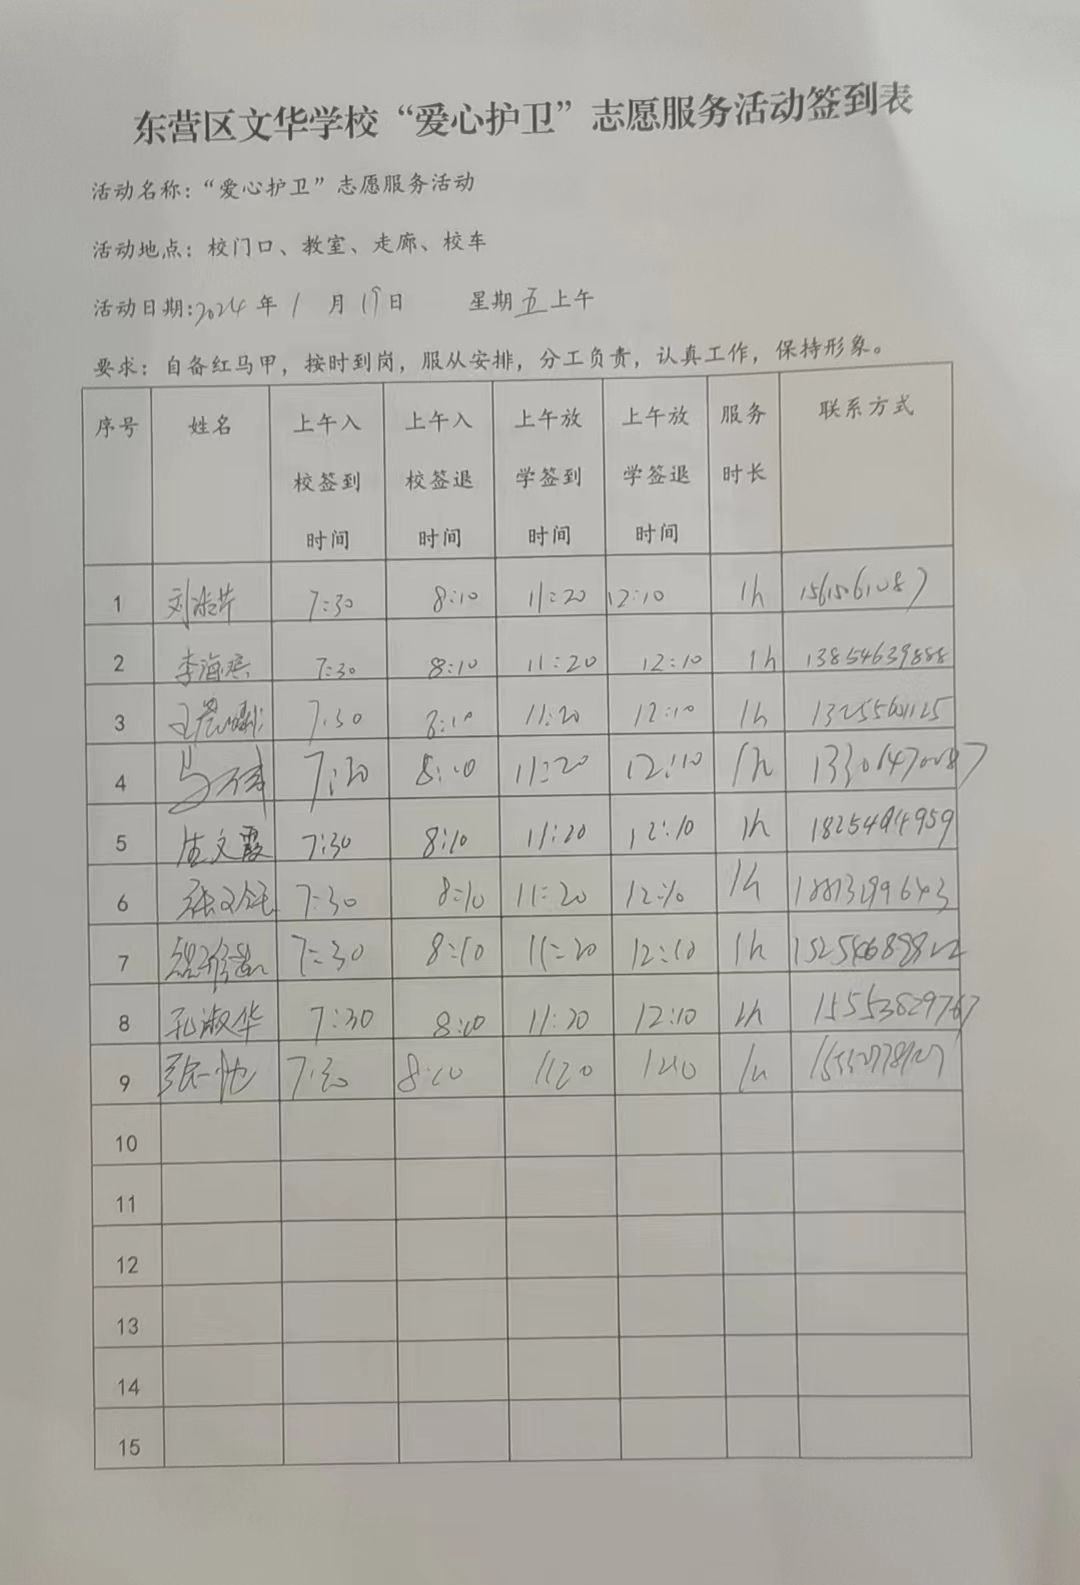 东营区文华学校“爱心护卫”志愿服务活动签到表
活动名称：“爱心护卫”志愿服务活动
活动地点：校门口、教室、走廊、校车
活动日期:2024年1月19日 星期五上午
要求：自备红马甲，按时到岗，服从安排，分工负责，认真工作，保持形象。
序号 姓名 上午入校签到时间 上午入校签退时间 上午放学签到时间 上午放学签退时间 服务时长 联系方式
1 7:30 8:10 11:20 12:10 1h
2 7:30 8:10 11:20 12:10 1h 13854639888
3 7:30 8:10 11:20 12:10 1h
4 7:30 8:10 11:20 12:10 1h 13306470087
5 7:30 8:10 11:20 12:10 1h
6 7:30 8:10 11:20 12:10 1h
7 7:30 8:10 11:20 12:10 1h
8 孔淑华 7:30 8:10 11:20 12:10 1h 15553829767
9 7:30 8:10 1120 1210 1h
10
11
12
13
14
15